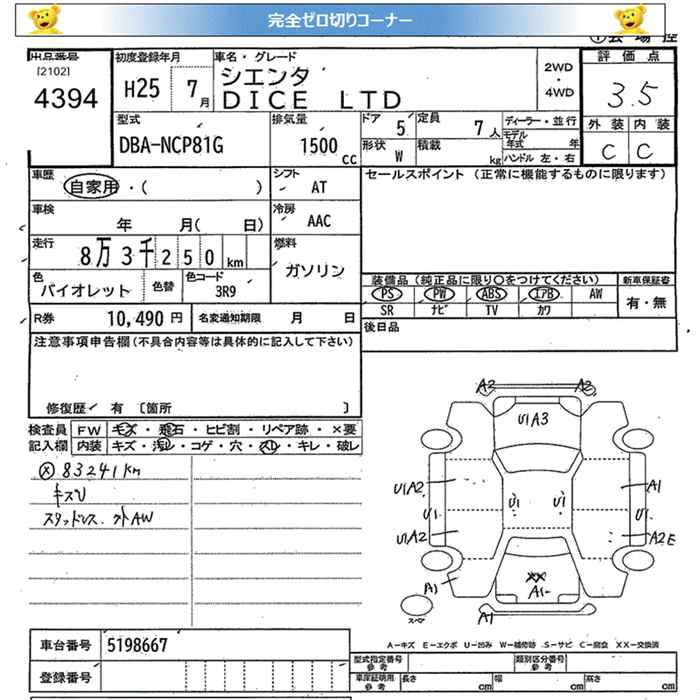 完全ゼロ切りコーナー
出品番号 初度登録年月 車名・グレード 評価点
[2102]
4394
H25 7月
シエンタ
DICE LTD
2WD
・
4WD
3.5
型式 排気量 ドア 定員 ディーラー・並行 外装 内装
DBA-NCP81G 1500 CC 5 7人 モデル年式 年
形状 W 積載 kg ハンドル 左・右 C C
車歴 自家用・( ) シフト AT セールスポイント (正常に機能するものに限ります)
車検 年 月( 日) 冷房 AAC
走行 8万3千250km 燃料 ガソリン
色 バイオレット 色替 色コード 3R9
装備品 (純正品に限り○をつけてください) 新車保証書
PS PW ABS エアB AW 有・無
SR ナビ TV カワ
R券 10,490円 名変通知期限 月 日 後日品
注意事項申告欄(不具合内容等は具体的に記入して下さい)
修復歴 有 〔箇所 〕
検査員 FW キズ・飛石・ヒビ割・リペア跡・×要
記入欄 内装 キズ・汚レ・コゲ・穴・スレ・キレ・破レ
83241km
キズU
スタッドレス.
A2 A2
U1A3
U1A2 U1 U1 A1
U1 U1
U1A2 A2E
A1 XX A1
スペア A1
A−キズ E−エクボ U−凹み W−補修跡 S−サビ C−腐食 XX−交換済
車台番号 5198667
型式指定番号 参考 類別区分番号 参考
登録番号 車庫証明用 参考 長さ cm 幅 cm 高さ cm